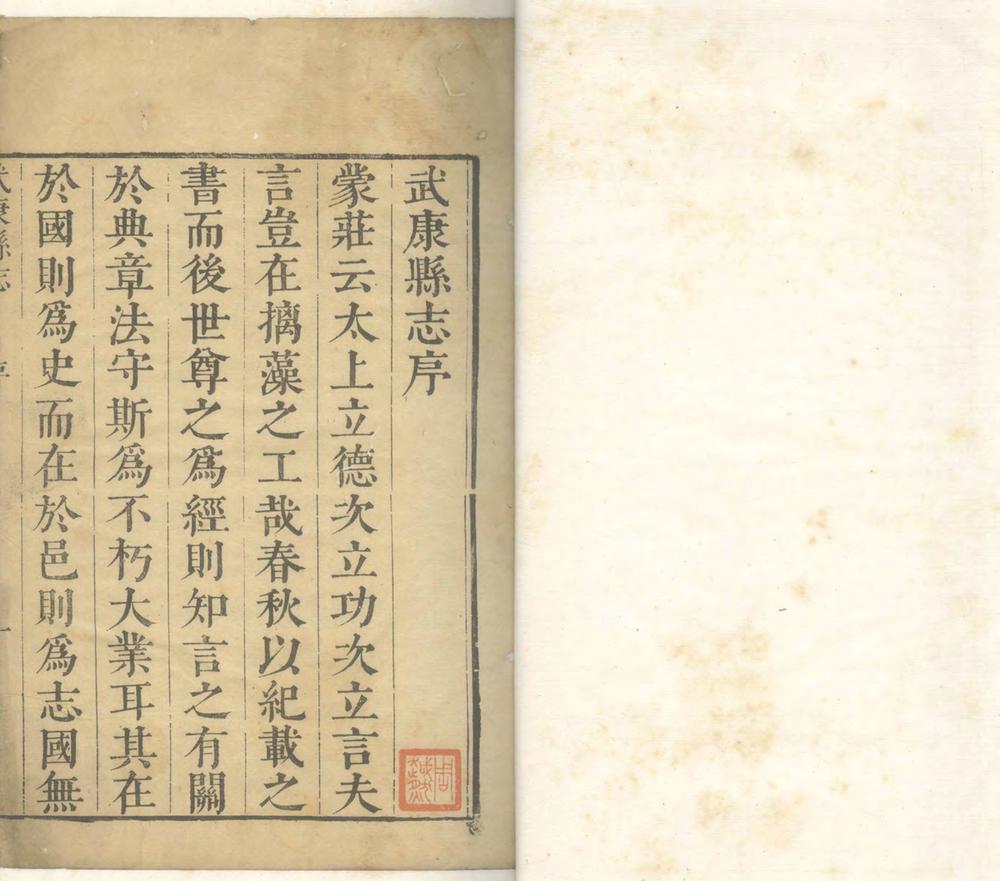 武康縣志序
蒙莊云太上立德次立功次立言夫
言豈在摛藻之工哉春秋以紀載之
書而後世尊之爲經則知言之有關
於典章法守斯爲不朽大業耳其在
於國則爲史而在於邑則爲志國無
武康縣志 序 一
周越然